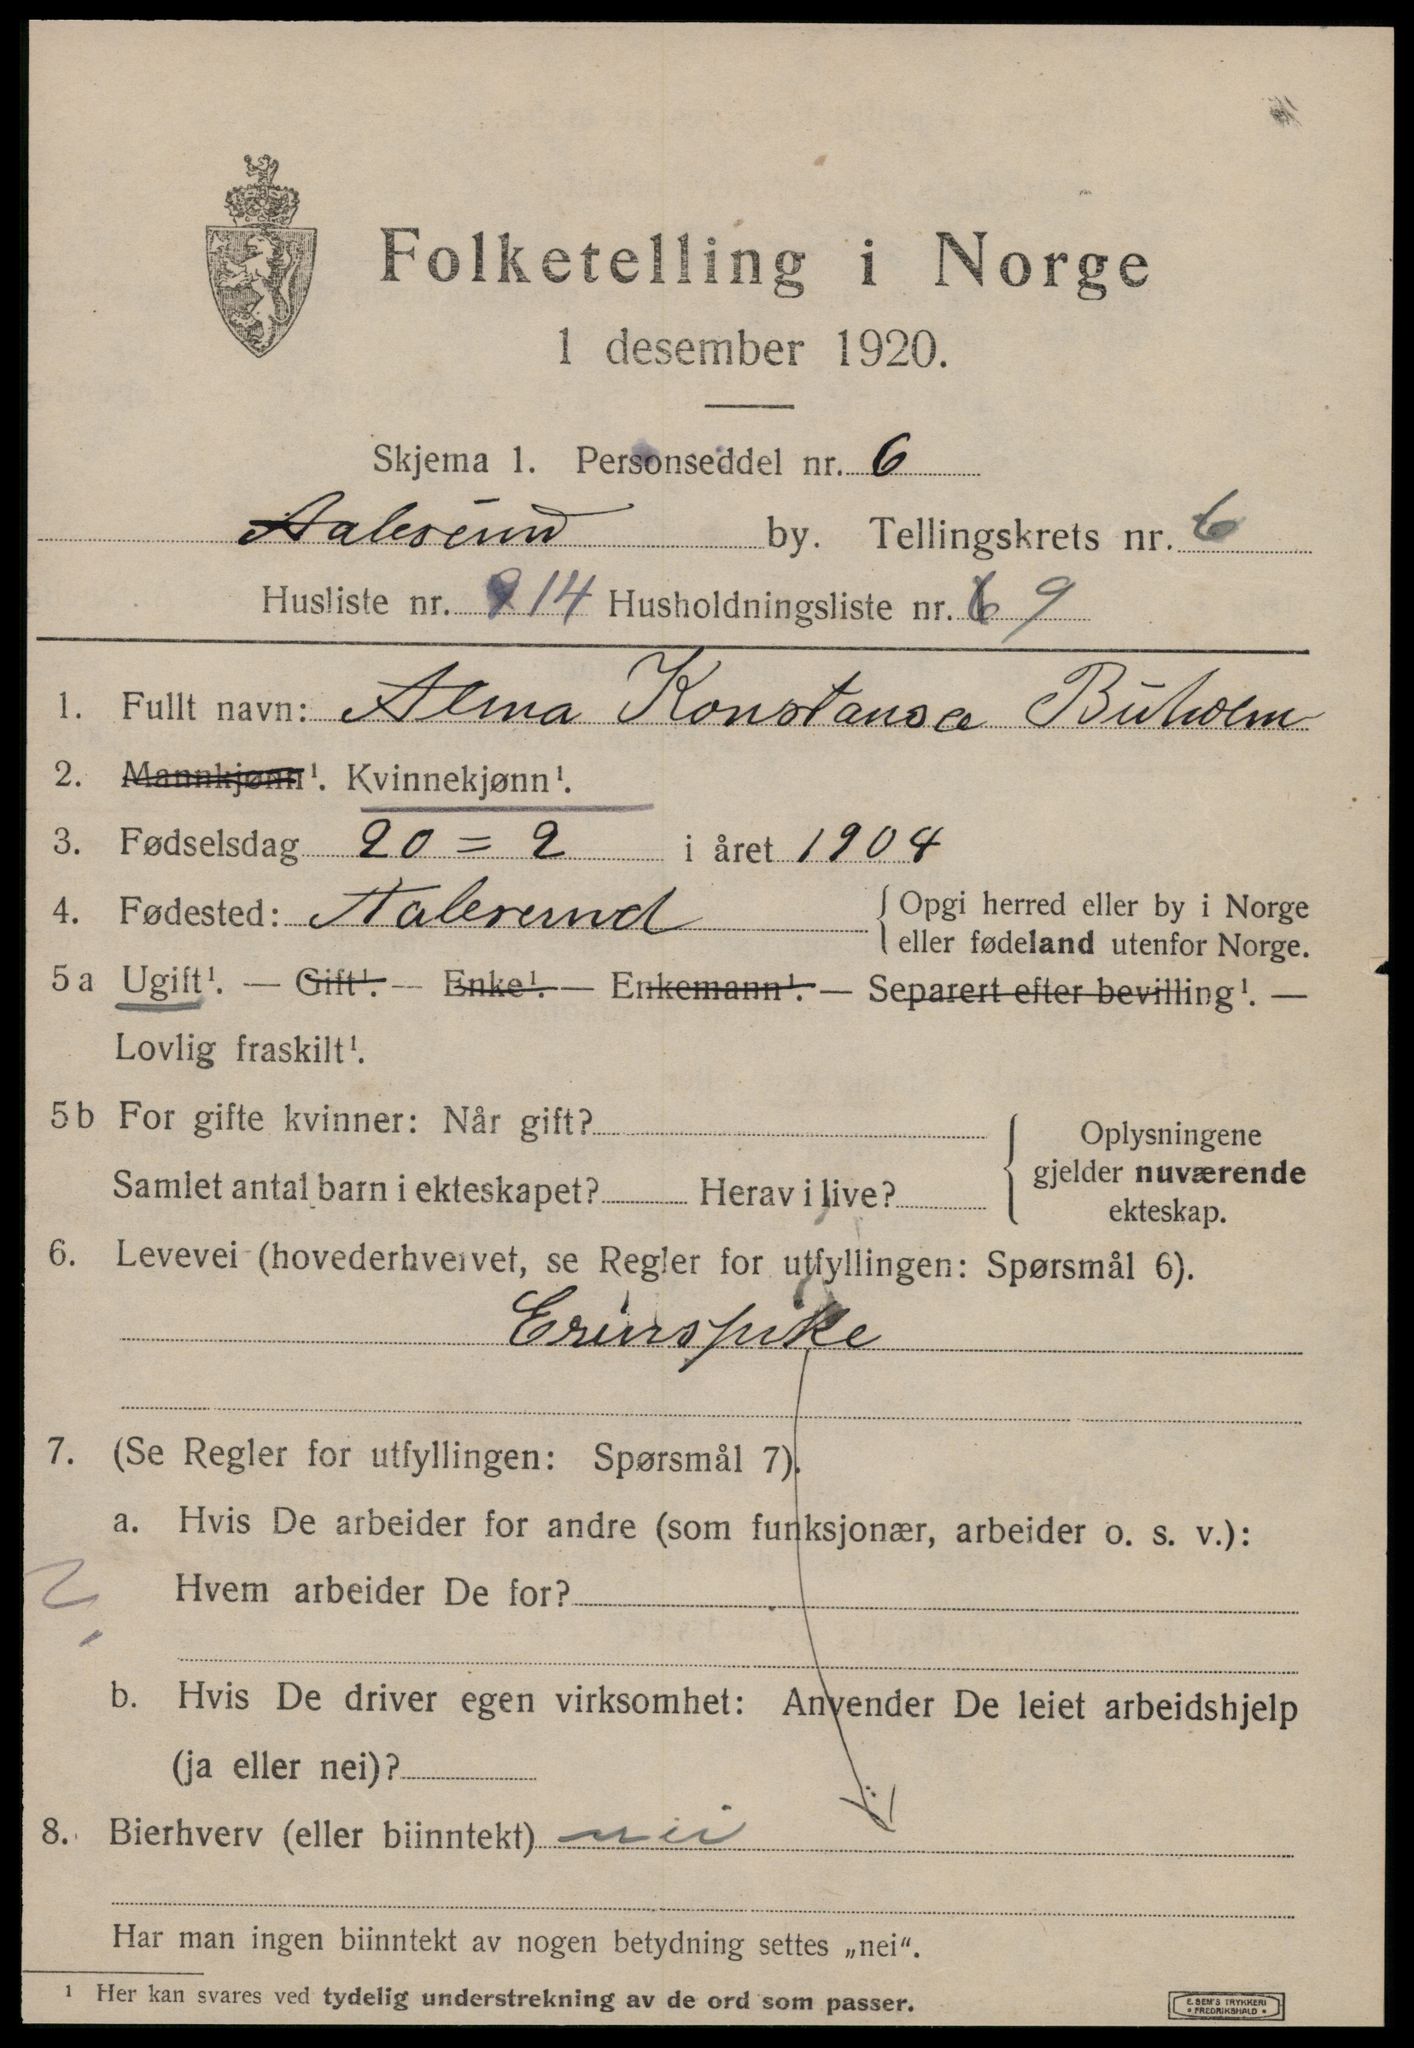 Folketelling i Norge
1 desember 1920.
Skjema 1. Personseddel nr. 6
Aalesund by. Tellingskrets nr. 6
Husliste nr. 14 Husholdningsliste nr. 9
1. Fullt navn: Alma Konstanse Buholm
2. Mannkjønn¹. Kvinnekjønn¹.
3. Fødselsdag 20 = 2 i året 1904
4. Fødested: Aalesund { Opgi herred eller by i Norge
eller fødeland utenfor Norge.
5 a Ugift¹. — Gift¹. — Enke¹. — Enkemann¹. — Separert efter bevilling¹. —
Lovlig fraskilt¹.
5 b For gifte kvinner: Når gift?
Samlet antal barn i ekteskapet? Herav i live?
{ Oplysningene
gjelder nuværende
ekteskap.
6. Levevei (hovederhvervet, se Regler for utfyllingen: Spørsmål 6).
7. (Se Regler for utfyllingen: Spørsmål 7).
a. Hvis De arbeider for andre (som funksjonær, arbeider o. s. v.):
Hvem arbeider De for?
b. Hvis De driver egen virksomhet: Anvender De leiet arbeidshjelp
(ja eller nei)?
8. Bierhverv (eller biinntekt) nei
Har man ingen biinntekt av nogen betydning settes „nei".
¹ Her kan svares ved tydelig understrekning av de ord som passer.
E. SEM'S TRYKKERI
• FREDRIKSHALD •